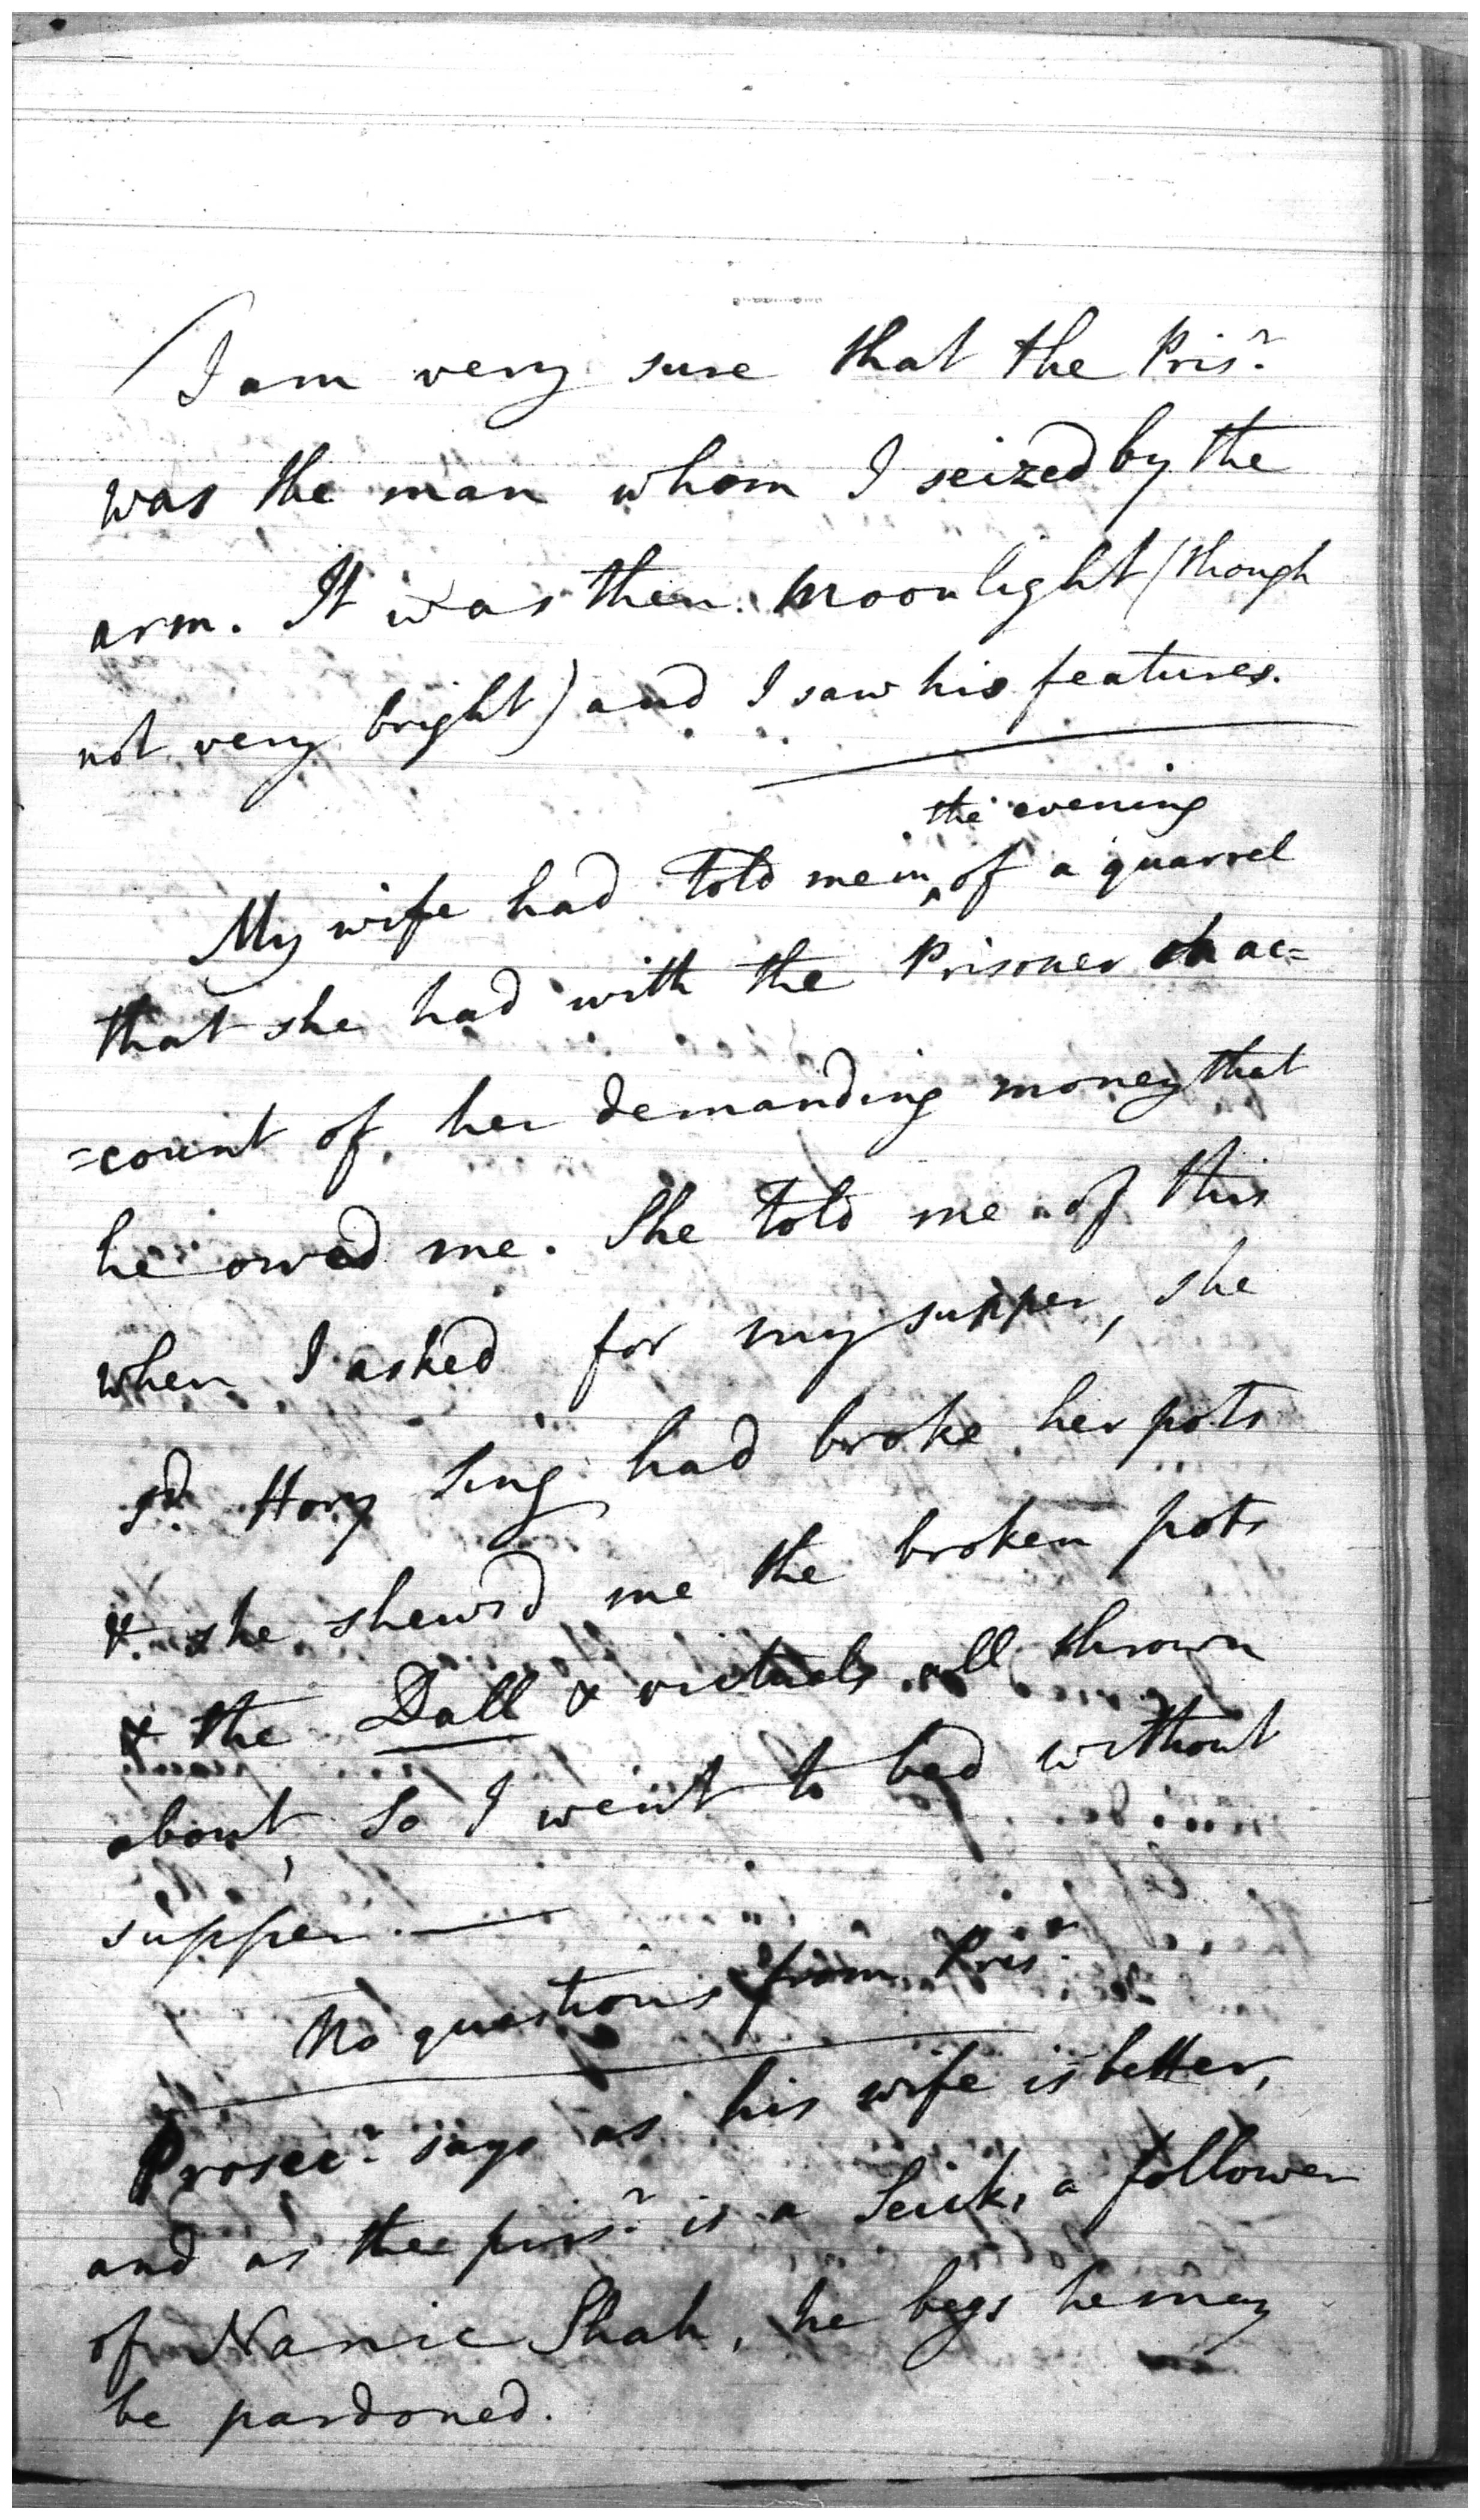 I am very sure that the Prisr.
was the man whom I seized by the
arm. It was then moonlight (though
not very bright) and I saw his features.
the evening
My wife had told me in ^ of a quarrel
that she had with the Prisoner on ac=
=count of her demanding money that
he owed me. She told me of this
when I asked for my supper, she
sd. Hory Sing had broke her pots
& she shew'd me the broken pots
& the Dall & victuals all thrown
about, so I went to bed without
supper. —
No questions from Prisr.
Prosecr. says as his wife is better,
and as the prisr. is a Seick, a follower
of Nanic Shah, he begs he may
be pardoned.